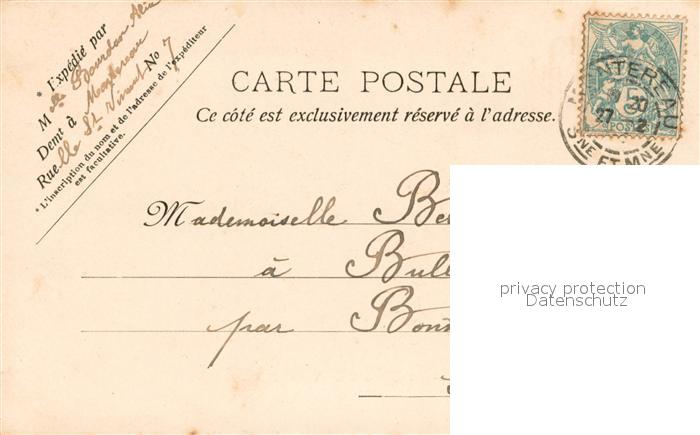 * Expédié par
M
Demt à Montereau
Ruelle St Vincent No 7
* L'inscription du nom et de l'adresse de l'expéditeur
est facultative.
CARTE POSTALE
Ce côté est exclusivement réservé à l'adresse.
MONTEREAU
20
27 2
SNE ET MNE
5
POSTES
Mademoiselle Be
à Bull
par Bonn
à
privacy protection
Datenschutz